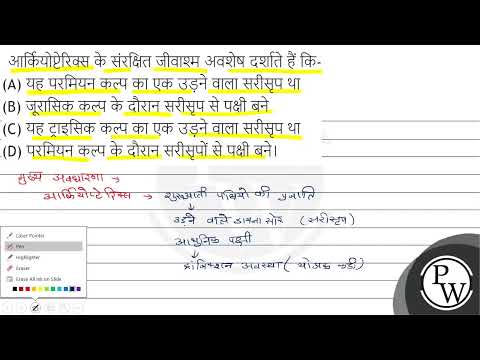 आर्कियोप्टेरिक्स के संरक्षित जीवाश्म अवशेष दर्शाते हैं कि-
(A) यह परमियन कल्प का एक उड़ने वाला सरीसृप था
(B) जूरासिक कल्प के दौरान सरीसृप से पक्षी बने
(C) यह ट्राइसिक कल्प का एक उड़ने वाला सरीसृप था
(D) परमियन कल्प के दौरान सरीसृपों से पक्षी बने।
मुख्य अवधारणा →
आर्कियोप्टेरिक्स → शुरुआती पक्षियो की प्रजाति
उड़ने वाले डायनासोर (सरीसृप)
आधुनिक पक्षी
ट्रांजिशन अवस्था (योजक कड़ी)
Laser Pointer
Pen
Highlighter
Eraser
Erase All Ink on Slide
PW